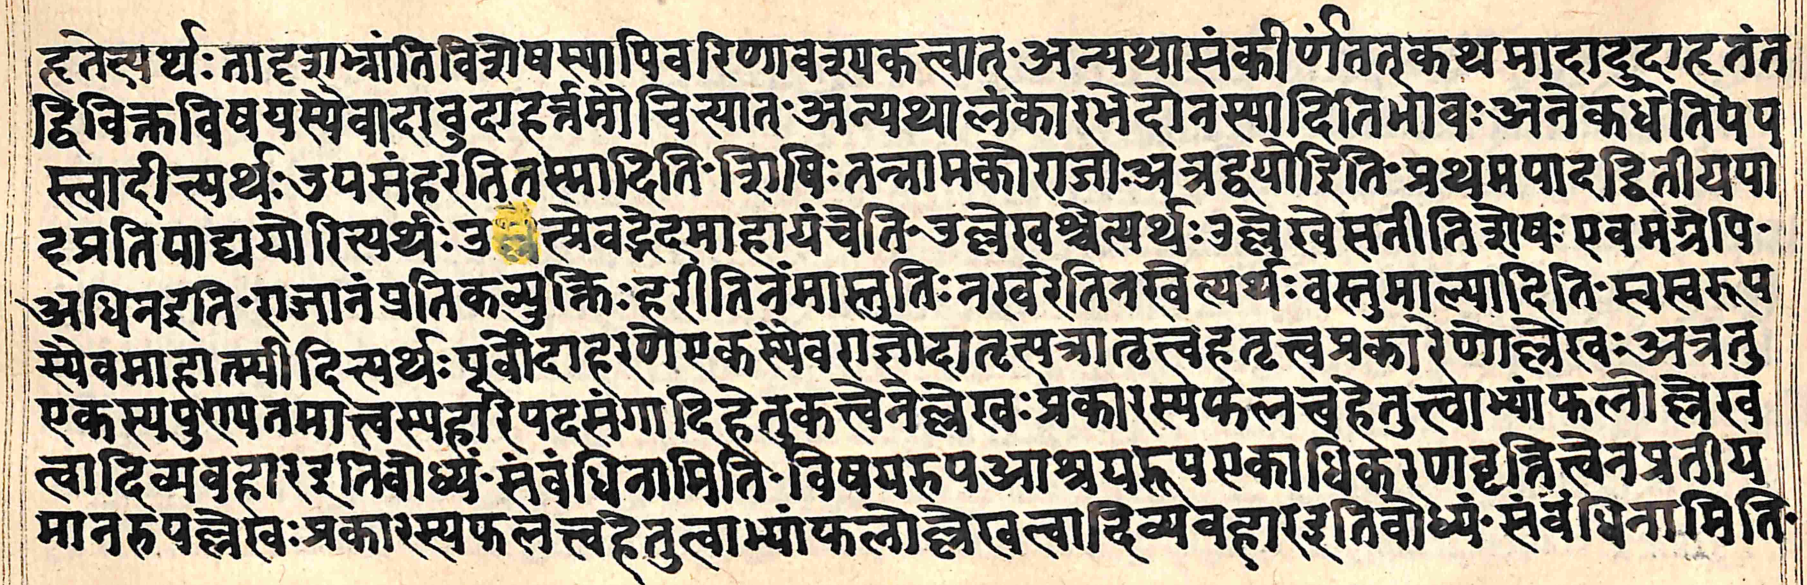 हृतेत्यर्थः तादृशभ्रांतिविशेषस्यापिवरिणावश्यकत्वात्·अन्यथासंकीर्णंततकथमादादुदाहृतंत
द्विविक्तविषयस्यैवादावुदाहर्त्तुमौचित्यात्·अन्यथालंकारभेदोनस्यादितिभावः अनेकधेतिपप
स्त्वादीत्यर्थः उपसंहरतितस्मादिति·शिषिः तन्नामकोराजोःअत्रद्वयोरिति·प्रथमपादद्वितीयपा
दप्रतिपाद्ययोरित्यर्थः उत्प्रेवद्वेदमाहायंचेति·उल्लेखश्चेत्यर्थः उल्लेखेसतीतिशेषः एवमग्रेपि·
अधिनइति·राजानंप्रतिकव्युक्तिः हरीतिनंमास्तुतिः नखरेतिनखेत्यर्थः वस्तुमाल्यादिति·स्वस्वरूप
स्यैवमाहात्म्यीदित्यर्थः पूर्वोदाहरणेएकस्यैवराज्ञोदातृत्पत्रातृत्वहतृत्वप्रकारेणोल्लेखः अत्रतु
एकस्यपुण्यतमात्वस्यहरिपदसंगादिहेतुकत्वेनेल्लेखः प्रकारस्यफलचहेतुत्वाभ्यांफलोल्लेख
त्वादिव्यवहारइतिबोध्यं·संबंधिनामिति·विषयरुपआश्रयरूपएकाधिकरणवृत्तित्वेनप्रतीय
मानरुपल्लेखः प्रकारस्यफलत्वहेतुत्वाभ्यांफलोल्लेखत्वादिव्यवहारइतिबोध्यं·संबंधिनामिति·